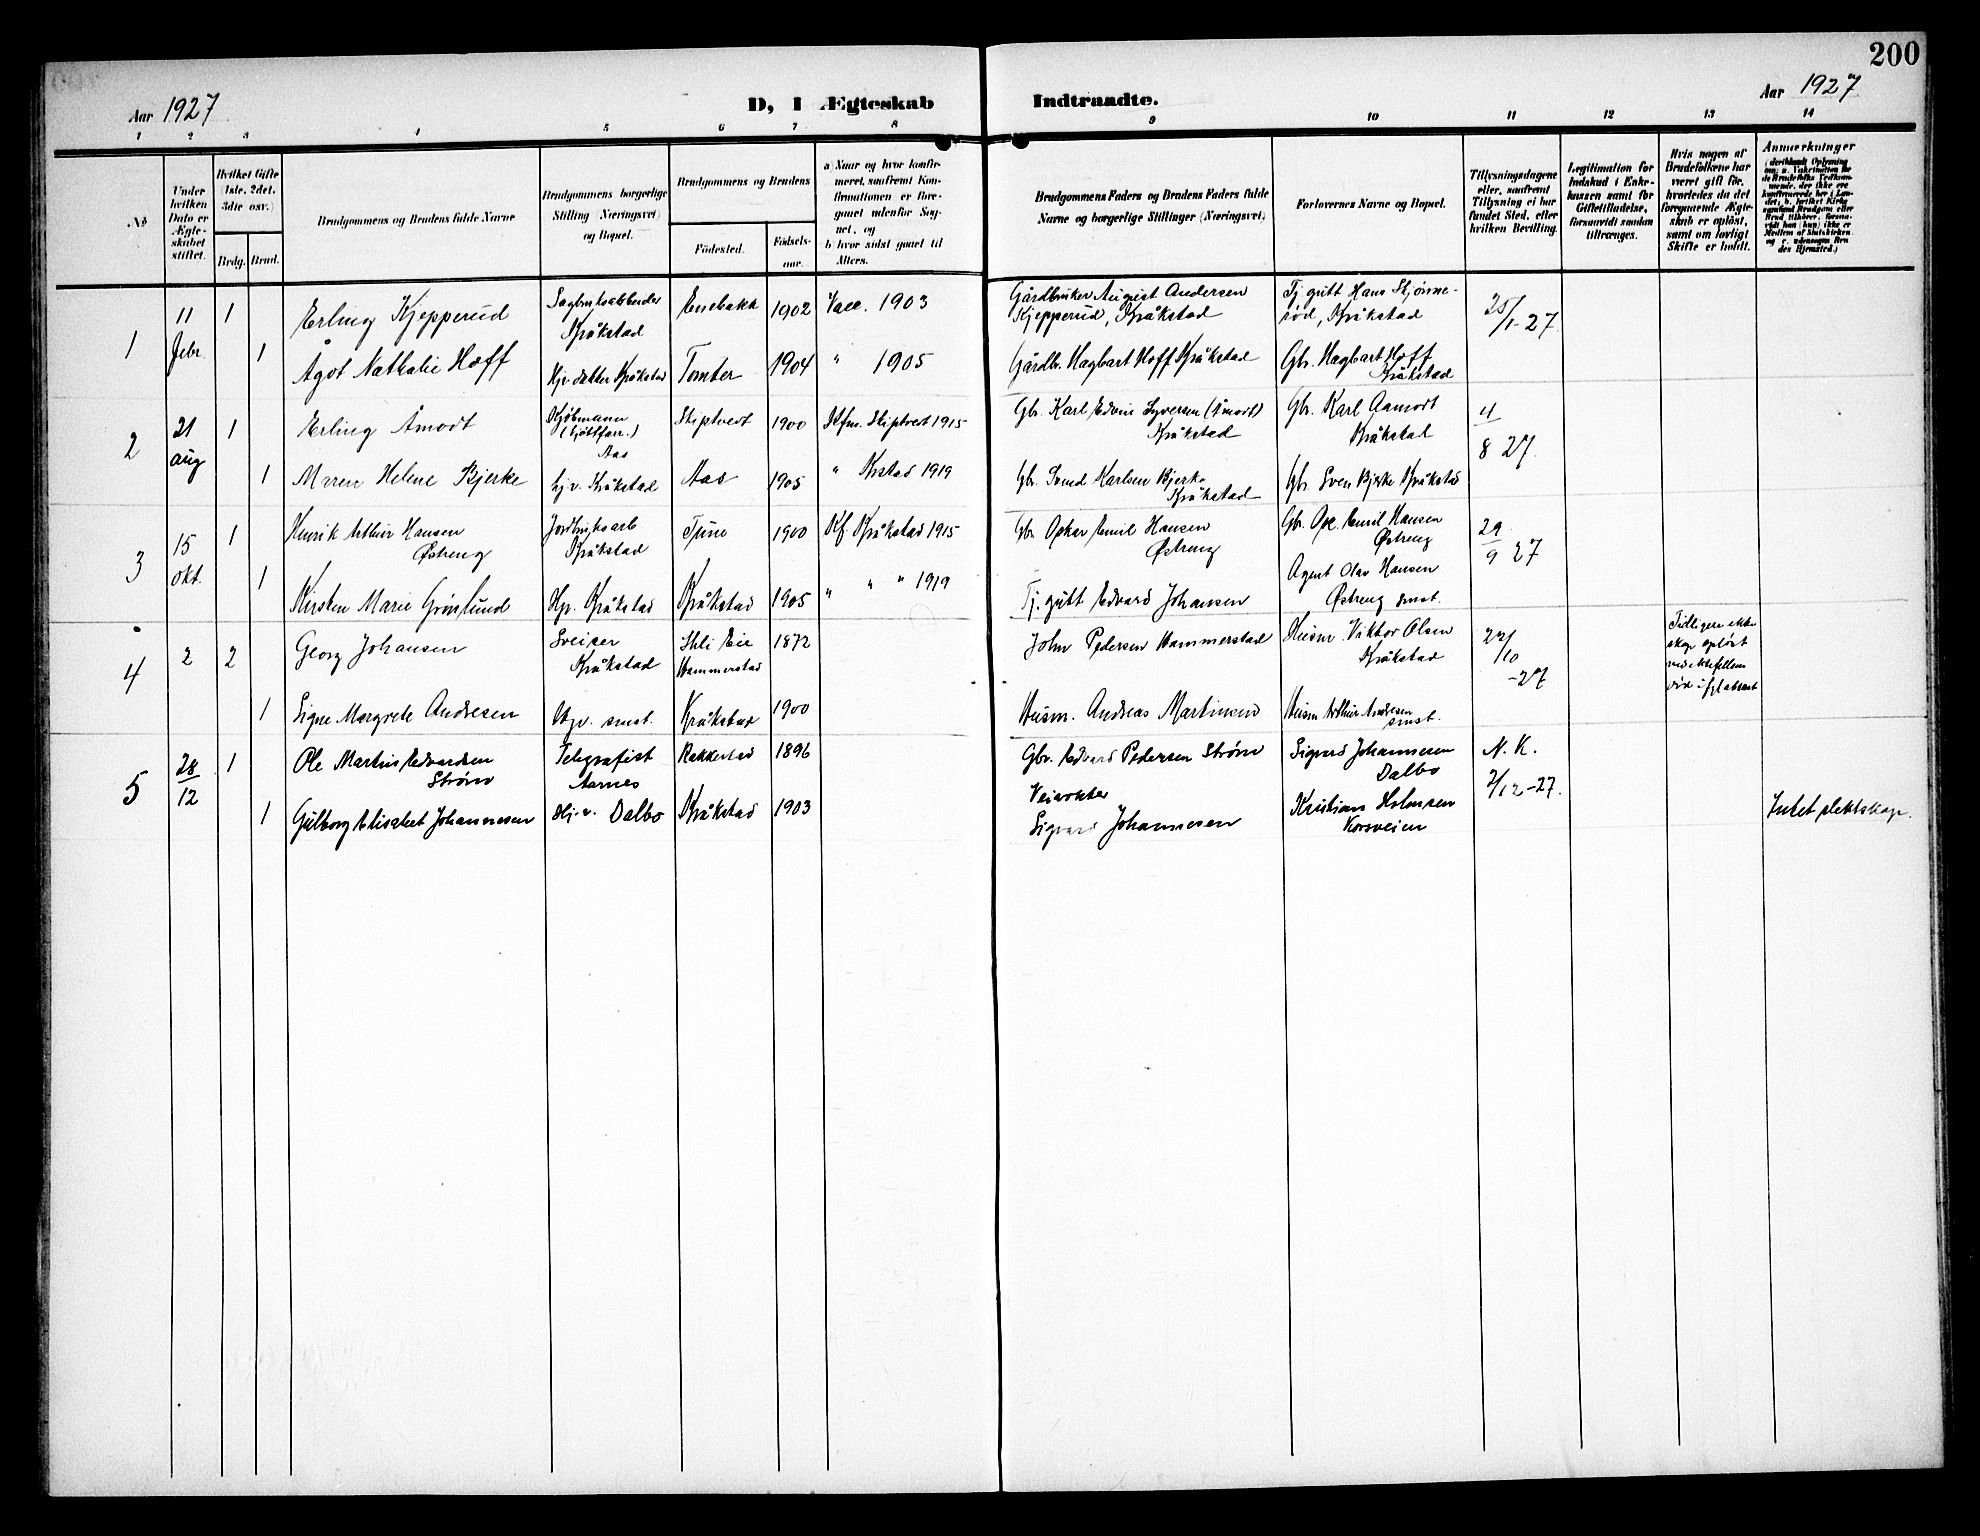 200
Aar 1927
D, I Ægteskab
Indtraadte.
Aar 1927
1 2 3 4 5 6 7 8 9 10 11 12 13 14
No
Under hvilken Dato er Ægteskabet stiftet.
Hvilket Gifte (1ste, 2det, 3die osv.)
Brdg. Brud.
Brudgommens og Brudens fulde Navne
Brudgommens borgerlige Stilling (Næringsvei) og Bopæl.
Brudgommens og Brudens
Födested.
Födsels-aar.
a) Naar og hvor konfirmeret, saafremt Konfirmationen er foregaaet udenfor Sognet, og
b) hvor sidst gaaet til Alters.
Brudgommens Faders og Brudens Faders fulde Navne og borgerlige Stillinger (Næringsvei)
Forlovernes Navne og Bopæl.
Tillysningsdagene eller, saafremt Tillysning ei har fundet Sted, efter hvilken Bevilling.
Legitimation for Indskud i Enkekassen samt for Giftetilladelse, forsaavidt saadan tiltrænges.
Hvis nogen af Brudefolkene har været gift för, hvorledes da det foregaaende Ægteskab er oplöst, samt om lovligt Skifte er holdt.
Anmærkninger
1
11 febr
1
Erling Kjepperud
Sagbruksarbeider Kråkstad
Enebakk
1902
Vacc. 1903
Gårdbruker August Andersen Kjepperud, Kråkstad
Tj.gutt Hans Skjønnerød, Kråkstad
25/1-27
1
Ågot Nathalie Hoff
Hj.v. datter Kråkstad
Tomter
1904
" 1905
Gårdbr. Hagbart Hoff Kråkstad
Gbr. Hagbart Hoff Kråkstad
2
21 aug
1
Erling Åmodt
Kjøbmann
Aas
Skiptvedt
1900
Kfm. Skiptvedt 1915
Gbr. Karl Edvin Syversen (Åmodt) Kråkstad
Gbr. Karl Aamodt Kråkstad
8 27.
1
Maren Helene Bjerke
hj.v. Kråkstad
Aas
1905
" Krstad 1919
Gbr. Svend Karlsen Bjerke Kråkstad
Gbr. Sven Bjerke Kråkstad
3
15 okt.
1
Henrik Arthur Hansen Østreng
Jordbruksarb Kråkstad
Tune
1900
Kf Kråkstad 1915
Gbr. Oskar Emil Hansen Østreng
Gbr. Osc. Emil Hansen Østreng
29/9 27
1
Kirsten Marie Grønlund
Hjv. Kråkstad
Kråkstad
1905
" " " 1919
Tj.gutt Edvard Johansen
Agent Olav Hansen Østreng smst.
4
2
2
Georg Johansen
Sveiser Kråkstad
Skli Eie Hammerstad
1872
John Pedersen Hammerstad
Husm. Viktor Olsen Kråkstad
/10 -27
Tidligere ekteskap opløst ved ektefellens død
1
Signe Margrete Andresen
smst.
Kråkstad
1900
Husm. Andreas Martinsen
Husm Arthur Andresen smst.
5
28/12
1
Ole Martin Edvardsen Strøm
Telegrafist Aarnes
Rakkestad
1896
Gbr. Edvard Pedersen Strøm
Sigvard Johannesen Dalbo
N. K.
2/12-27.
1
Gulborg Elisabet Johannesen
Hj.v. Dalbo
Kråkstad
1903
Veivokter Sigvard Johannesen
Kristians Holmsen Korsveien
Intet slektskap.